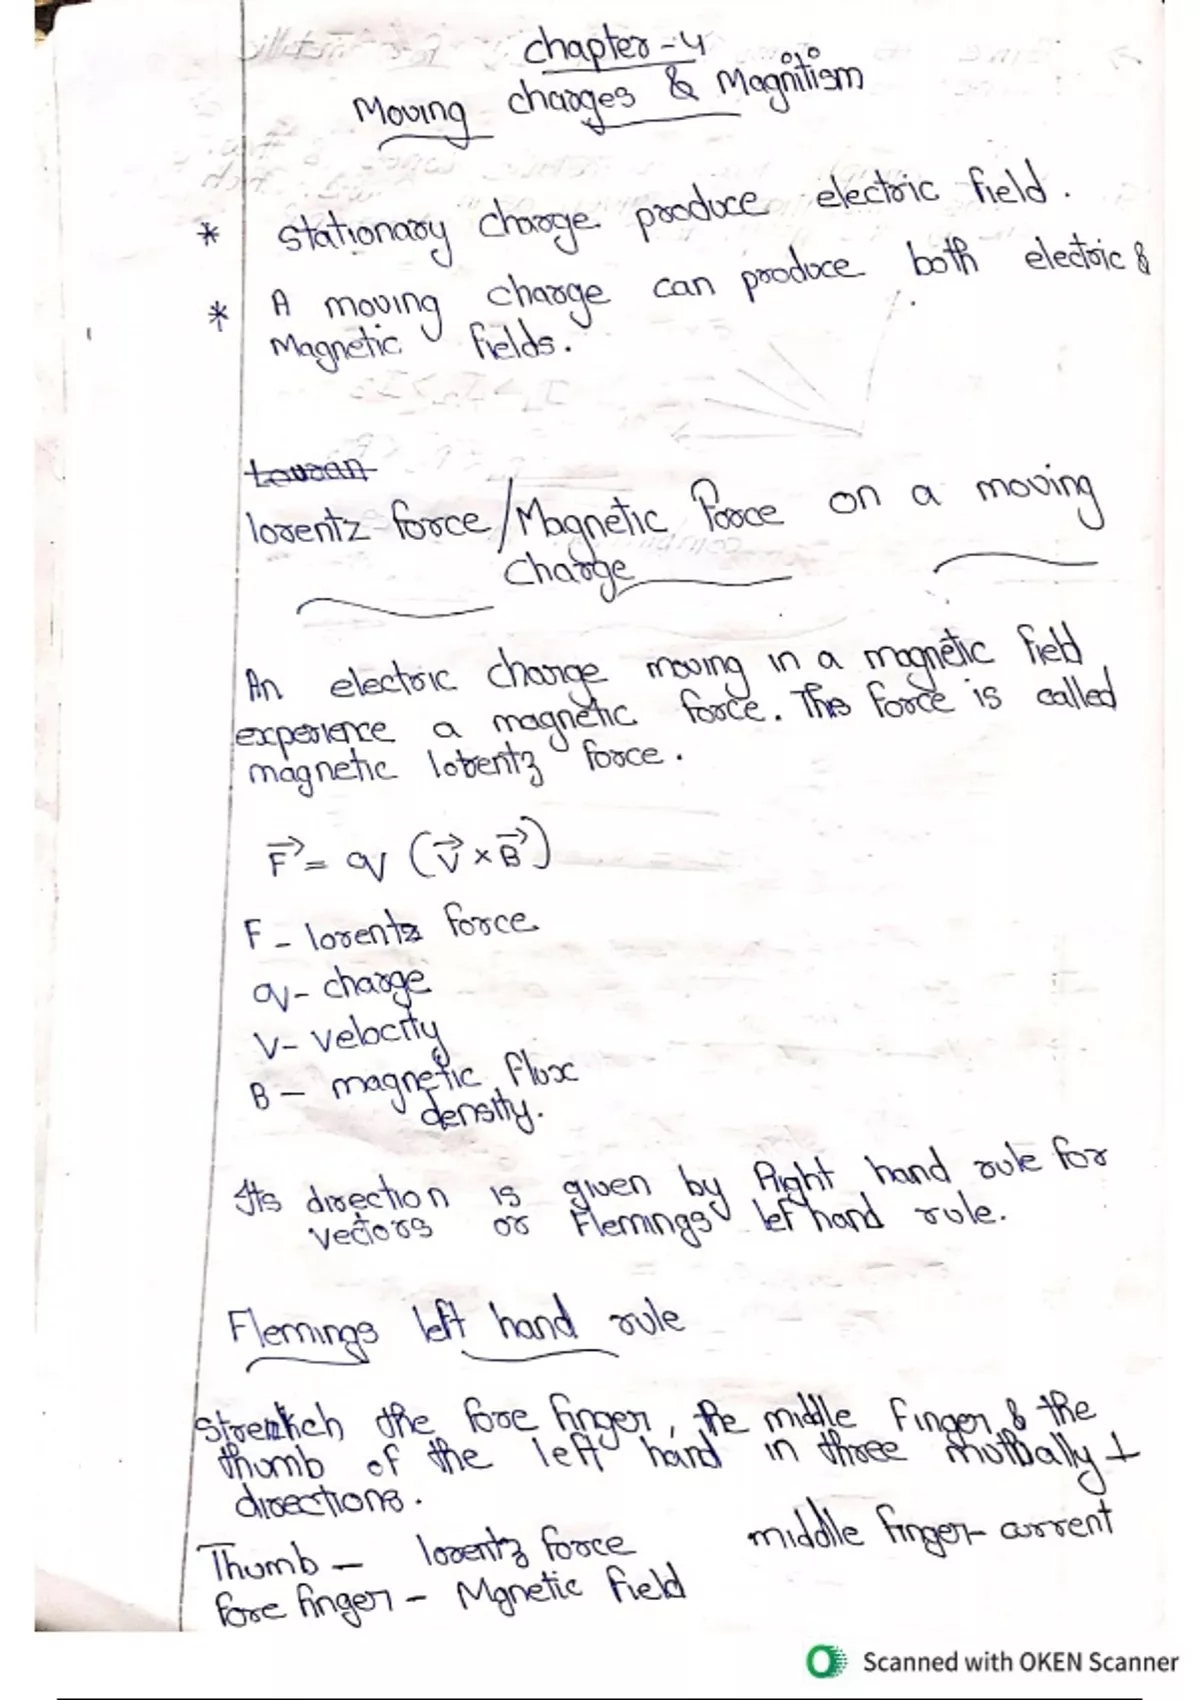 chapter-4
Moving charges & Magnitism
* stationary charge produce electric field.
* A moving charge can produce both electric &
Magnetic fields.
lorentz force/Magnetic Force on a moving
charge
An electric charge moving in a magnetic field
experience a magnetic force. This force is called
magnetic lorentz force.
F⃗ = q (V⃗ × B⃗)
F - lorentz force
q - charge
V - velocity
B - magnetic flux
density.
Its direction is given by Right hand rule for
vectors or Flemings lefthand rule.
Flemings left hand rule
Stretch the fore finger, the middle finger & the
thumb of the left hand in three mutually ⊥
directions.
Thumb - lorentz force middle finger - current
fore finger - Mgnetic field
Scanned with OKEN Scanner